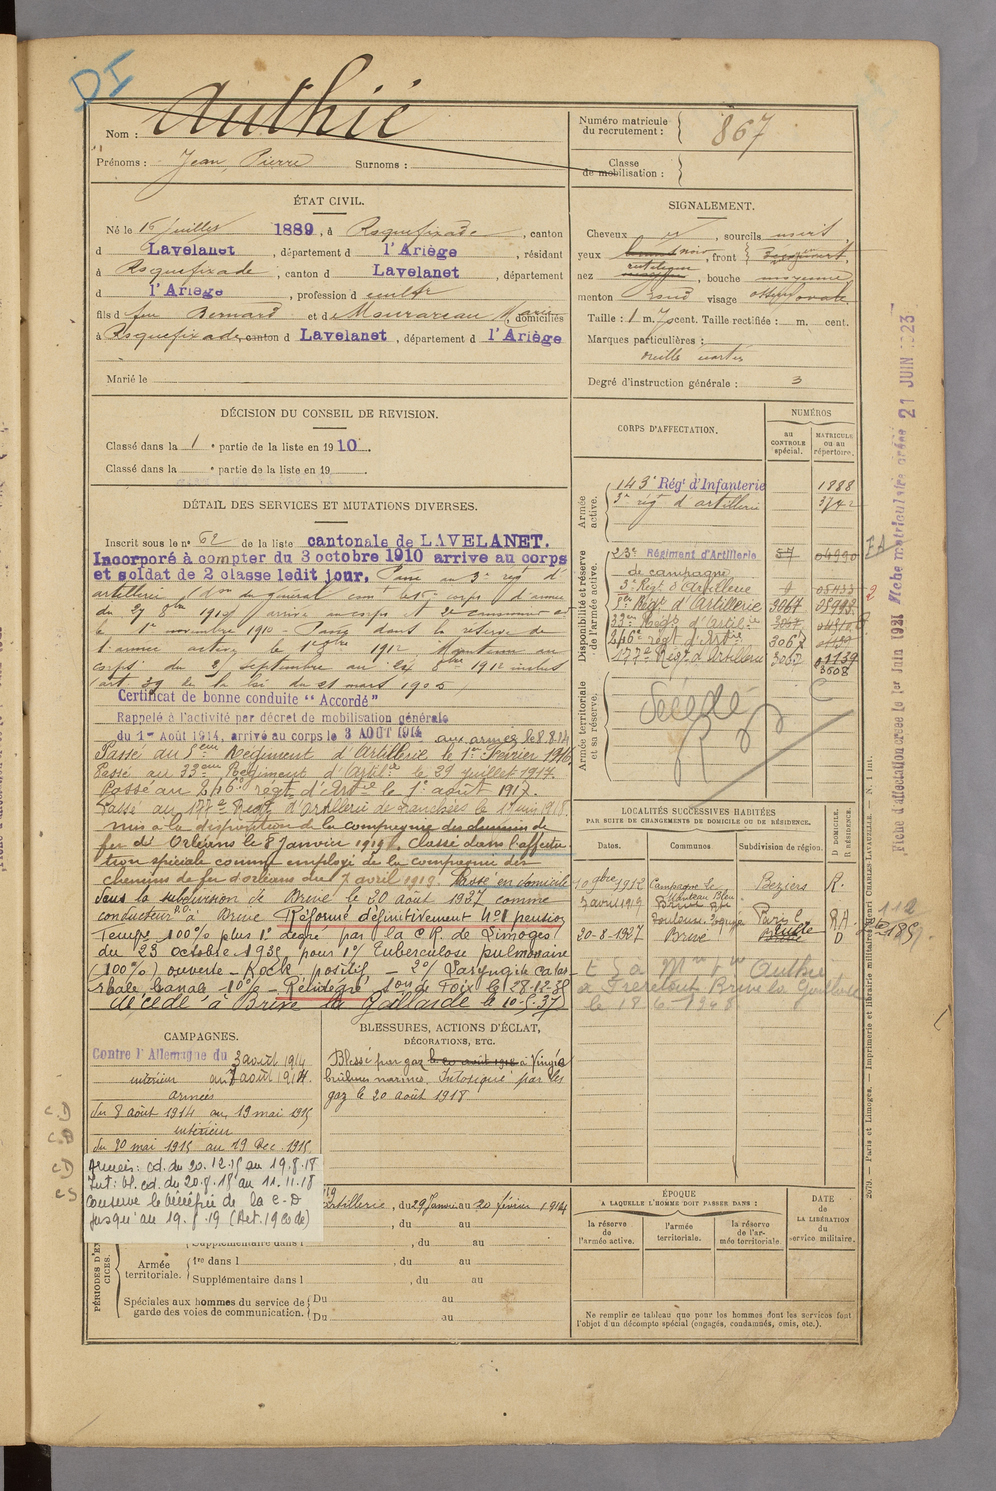 DI
Nom : Authié
Prénoms : Jean, Pierre Surnoms :
Numéro matricule du recrutement : 867
Classe de mobilisation :
ÉTAT CIVIL.
Né le 16 juillet 1889, à Roquefixade, canton
d Lavelanet, département d l'Ariège, résidant
à Roquefixade, canton d Lavelanet, département
d l'Ariège, profession d cultr
fils d feu Bernard et d Marie, domiciliés
à Roquefixade, canton d Lavelanet, département d l'Ariège
Marié le
SIGNALEMENT.
Cheveux , sourcils
yeux , front
nez rectiligne, bouche moyenne
menton rond visage ovale
Taille : 1 m. 70 cent. Taille rectifiée : m. cent.
Marques particulières :
Degré d'instruction générale : 3
DÉCISION DU CONSEIL DE REVISION.
Classé dans la 1 e partie de la liste en 1910.
Classé dans la e partie de la liste en 19
DÉTAIL DES SERVICES ET MUTATIONS DIVERSES.
Inscrit sous le no 62 de la liste cantonale de LAVELANET.
Incorporé à compter du 3 octobre 1910 arrivé au corps
et soldat de 2 classe ledit jour. Passé au 3e rég. d'
artillerie, don du général comt le 15e corps d'armée
du 27 8bre 1910 arrivé au corps et 2e canonnier
le 1er novembre 1910 - Passé dans la réserve de
l'armée active le 1er octobre 1912. Maintenu au
corps du 25 septembre au 1912 inclus
(art. 39 de la loi du 21 mars 1905)
Certificat de bonne conduite "Accordé"
Rappelé à l'activité par décret de mobilisation générale
du 1er Août 1914, arrivé au corps le 3 AOUT 1914 aux armées le 8.8.14
Passé au 5ème Régiment d'Artillerie le 1er Février 1916
Passé au 33ème Régiment d'Artie le 29 juillet 1917.
Passé au 246e régt d'Artie le 1er août 1917.
Passé au 177e Régt d'Artillerie de Tranchées le 1 juin 1918.
mis à la disposition de la compagnie des chemins de
fer d'Orléans le 8 Janvier 1919. Classé dans l'affecta
tion spéciale comme employé de la compagnie des
chemins de fer d'orléans du 7 avril 1919. Passé en domicile
dans la subdivision de Brive le 20 août 1927 comme
conducteur à Brive Réformé définitivement no1 pension
Tempe 100% plus 1er degré par la C.R. de Limoges
du 23 octobre 1935 pour 1o/ Tuberculose pulmonaire
(100%) ouverte - Koch positif - 2o/ Laryngite catar
rhale banale 10% - Réintégré son de Foix le 28-12-35
Décédé à Brive la Gaillarde le 10-5-37
CORPS D'AFFECTATION.
NUMÉROS
au CONTROLE spécial.
MATRICULE ou au répertoire.
Armée active.
143e Régt d'Infanterie 1888
3e rég d'artillerie 3742
Disponibilité et réserve de l'armée active.
23e Régiment d'Artillerie 57 04990
de campagne
3e Régt d'Artillerie
5e Régt d'Artillerie 3067
33e Régt d'Artilie 3067
246e régt d'Artie 3067
177e Régt d'Artillerie 3067
3608
Armée territoriale et sa réserve.
Décédé
LOCALITÉS SUCCESSIVES HABITÉES
PAR SUITE DE CHANGEMENTS DE DOMICILE OU DE RÉSIDENCE.
Dates. Communes. Subdivision de région. D DOMICILE. R RÉSIDENCE.
1912 Campagne le Béziers R.
7 avril 1919 Paris RA
20-8-1927 Brive Tulle D
Authié
Brive la Gaillarde
CAMPAGNES.
Contre l'Allemagne du 3 août 1914
intérieur au 7 août 1914.
armées
du 8 août 1914 au 19 mai 1915
intérieur
du 20 mai 1915 au 19 Déc. 1915
C.D
C.D
C.D
CS
Armées : cd. du 20.12.15 au 19.8.18
Int : bl. cd. du 20.8.18 au 11.11.18
Conserve le bénéfice de la C-D
jusqu'au 19.8.19 (Art. 19 Code)
BLESSURES, ACTIONS D'ÉCLAT,
DÉCORATIONS, ETC.
Blessé par gaz le 20 août 1918 à Vingré
brûlures narines, Intoxiqué par les
gaz le 20 août 1918
PÉRIODES D'EXERCICES.
artillerie, du 29 Janvr au 20 février 1914
, du au
Supplémentaire dans l , du au
Armée territoriale.
1re dans l , du au
Supplémentaire dans l , du au
Spéciales aux hommes du service de garde des voies de communication.
Du au
Du au
ÉPOQUE
A LAQUELLE L'HOMME DOIT PASSER DANS :
la réserve de l'armée active.
l'armée territoriale.
la réserve de l'armée territoriale.
DATE DE LA LIBÉRATION du service militaire.
Ne remplir ce tableau que pour les hommes dont les services font
l'objet d'un décompte spécial (engagés, condamnés, omis, etc.).
2079. — Paris et Limoges. — Imprimerie et librairie militaires Henri CHARLES-LAVAUZELLE. — N. 1 int.
Fiche d'affectation créée le 1er Juin 1921 Fiche matriculaire créée 21 JUIN 1923